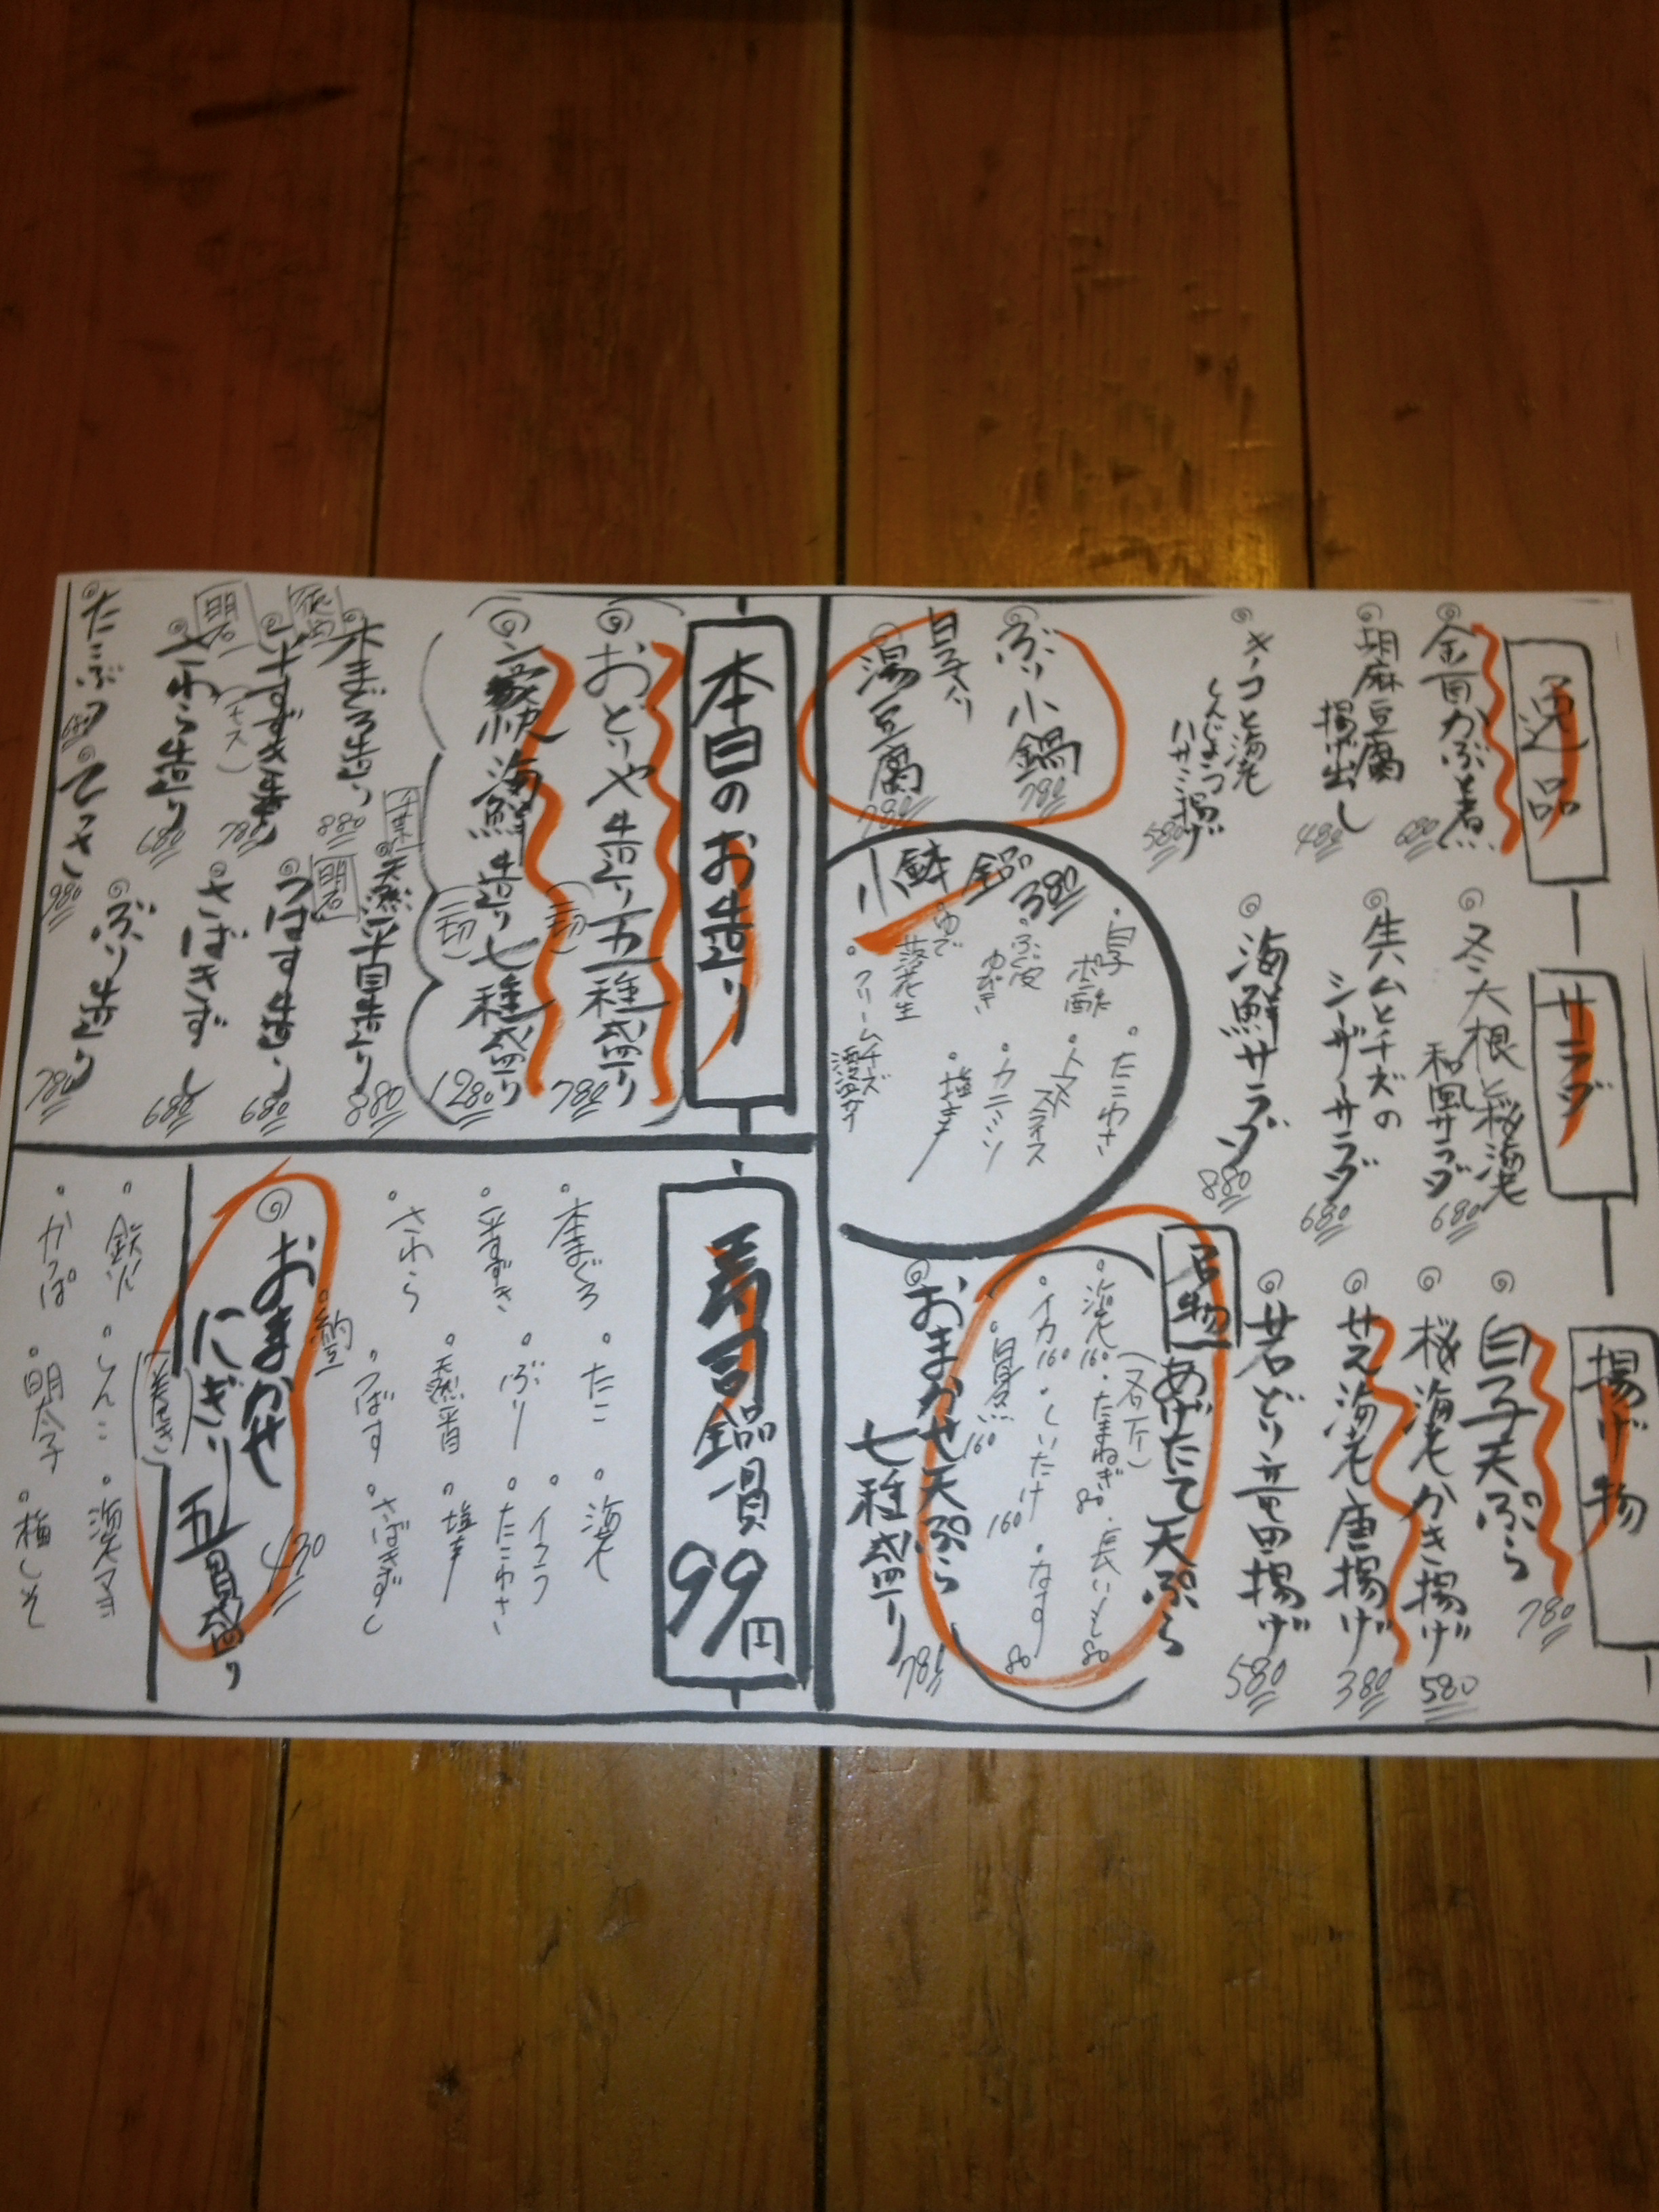 逸品
金目かぶと煮
680
胡麻豆腐
揚げ出し
480
キノコと海老
しんじょうの
ハサミ揚げ
580
ぶり小鍋
780
白子入り
湯豆腐
780
サラダ
冬大根と桜海老
和風サラダ
680
生ハムとチーズの
シーザーサラダ
680
海鮮サラダ
880
揚げ物
白子天ぷら
780
桜海老かき揚げ
580
甘え海老唐揚げ
380
若どり竜田揚げ
580
小鉢 各品380
・白子
ポン酢
・たこわさ
・ぶり皮
ゆびき
・トマト
スライス
・ゆで
落花生
・カニミソ
・塩辛
・クリームチーズ
名物
あげたて天ぷら
・海老 160
・たまねぎ 80
・長いも 80
・イカ 160
・しいたけ 160
・なす 80
160
おまかせ天ぷら
七種盛り
780
本日のお造り
おとりや造り五種盛り
(二切)
780
豪快海鮮造り七種盛り
(二切)
1280
本まぐろ造り
880
天然平目造り
880
徳島
平すずき造り
780
明石
つばす造り
680
明石
さわら造り
680
さばきずし
680
たこぶつ
680
てっさ
980
ぶり造り
780
寿司各品一貫
99円
・本まぐろ
・たこ
・海老
・平すずき
・ぶり
・イクラ
・さわら
・天然平目
・たこわさ
・つばす
・塩辛
・さばきずし
おまかせ
にぎり五貫盛り
430
(巻き)
・鉄火
・しんこ
・海老マヨ
・かっぱ
・明太子
・梅しそ